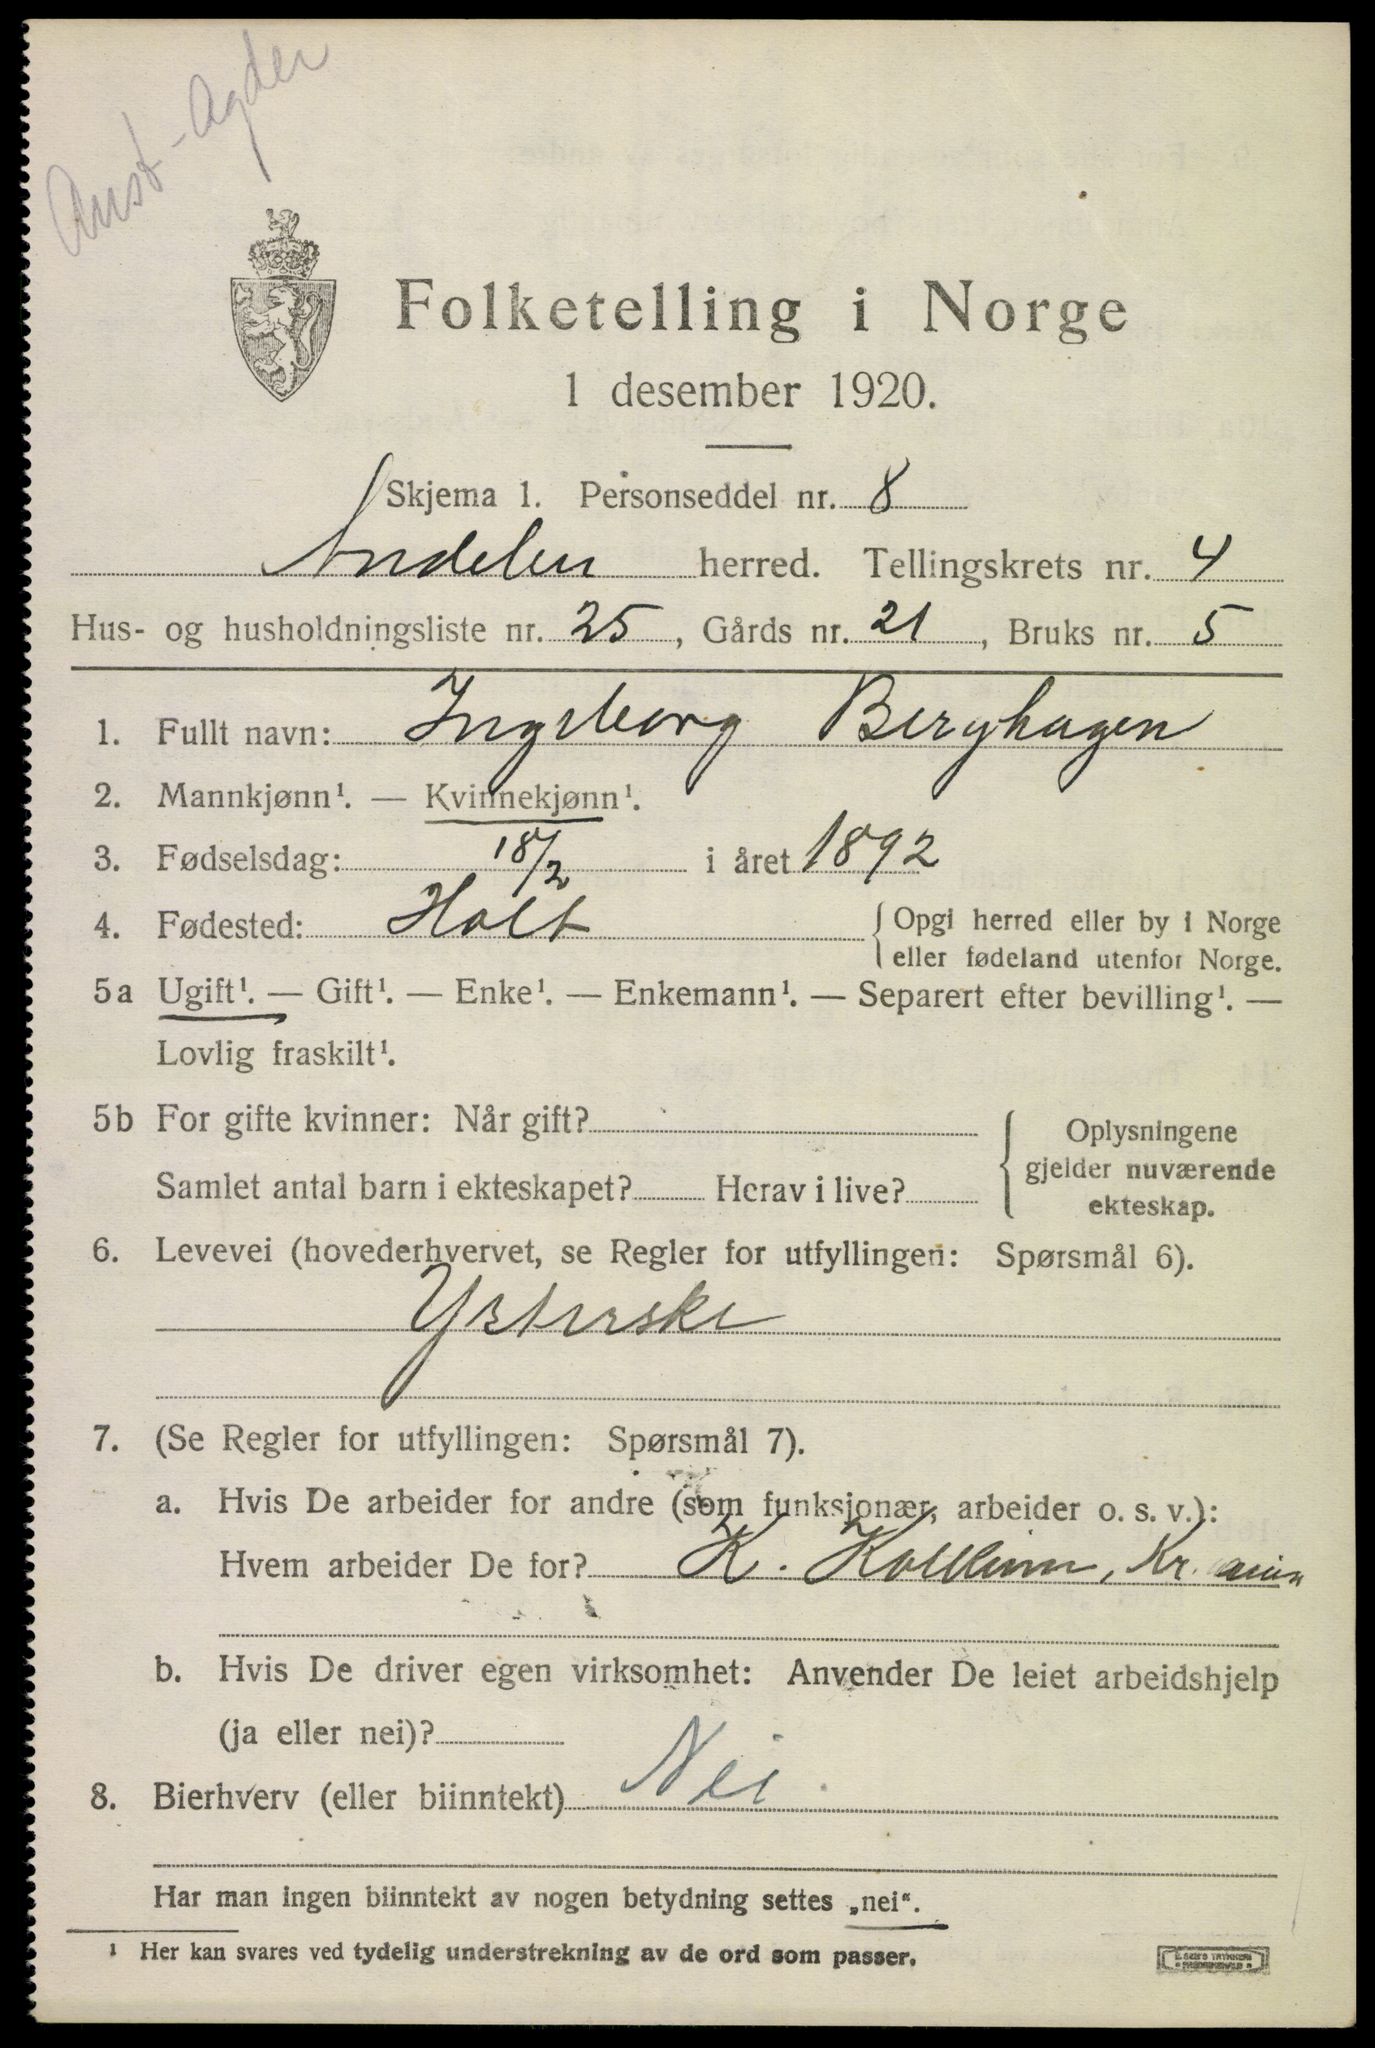 Aust-Agder
Folketelling i Norge
1 desember 1920.
Skjema 1. Personseddel nr. 8
herred. Tellingskrets nr. 4
Hus- og husholdningsliste nr. 25, Gårds nr. 21, Bruks nr. 5
1. Fullt navn: Ingeborg Berghagen
2. Mannkjønn¹. — Kvinnekjønn¹.
3. Fødselsdag: 18/2 i året 1892
4. Fødested: Holt { Opgi herred eller by i Norge
eller fødeland utenfor Norge.
5a Ugift¹. — Gift¹. — Enke¹. — Enkemann¹. — Separert efter bevilling¹. —
Lovlig fraskilt¹.
5b For gifte kvinner: Når gift?
Samlet antal barn i ekteskapet? Herav i live?
{ Oplysningene
gjelder nuværende
ekteskap.
6. Levevei (hovederhvervet, se Regler for utfyllingen: Spørsmål 6).
Ysterske
7. (Se Regler for utfyllingen: Spørsmål 7).
a. Hvis De arbeider for andre (som funksjonær, arbeider o. s. v.):
Hvem arbeider De for? K.
b. Hvis De driver egen virksomhet: Anvender De leiet arbeidshjelp
(ja eller nei)?
8. Bierhverv (eller biinntekt) Nei
Har man ingen biinntekt av nogen betydning settes „nei“.
¹ Her kan svares ved tydelig understrekning av de ord som passer.